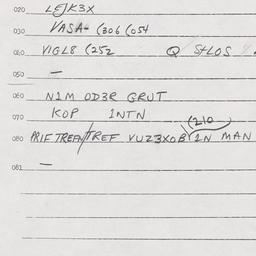 020 LEJK3X
030 VASA- (306 (054
040 VIGL8 (252 Q S+LOS
050 —
060 N1M OD3R GRUT
070 KOP 1NTN
(210
080 PRIF TREFN/TREF VUZ3XOB 1N MAN
081 —